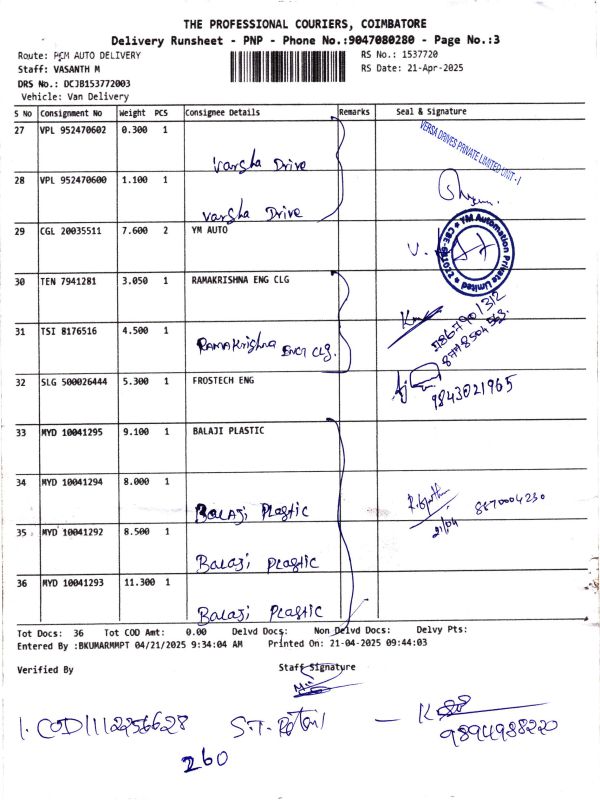 THE PROFESSIONAL COURIERS, COIMBATORE
Delivery Runsheet - PNP - Phone No.:9047080280 - Page No.:3
Route: PCM AUTO DELIVERY
RS No.: 1537720
Staff: VASANTH M
RS Date: 21-Apr-2025
DRS No.: DCJB153772003
Vehicle: Van Delivery
S No Consignment No Weight PCS Consignee Details Remarks Seal & Signature
27 VPL 952470602 0.300 1
Varsha Drive
VERSA DRIVES PRIVATE LIMITED UNIT-I
28 VPL 952470600 1.100 1
Varsha Drive
29 CGL 20035511 7.600 2 YM AUTO
YM Automation Private Limited
30 TEN 7941281 3.050 1 RAMAKRISHNA ENG CLG
31 TSI 8176516 4.500 1
RAMAKrishna ENGI CLG.
8778504563
32 SLG 500026444 5.300 1 FROSTECH ENG
9843021965
33 MYD 10041295 9.100 1 BALAJI PLASTIC
34 MYD 10041294 8.000 1
Balaji Plastic
8870004230
21/04
35 MYD 10041292 8.500 1
Balaji Plastic
36 MYD 10041293 11.300 1
Balaji Plastic
Tot Docs: 36 Tot COD Amt: 0.00 Delvd Docs: Non Delvd Docs: Delvy Pts:
Entered By :BKUMARMMPT 04/21/2025 9:34:04 AM Printed On: 21-04-2025 09:44:03
Verified By Staff Signature
1. COD1112256628
9894988220
260